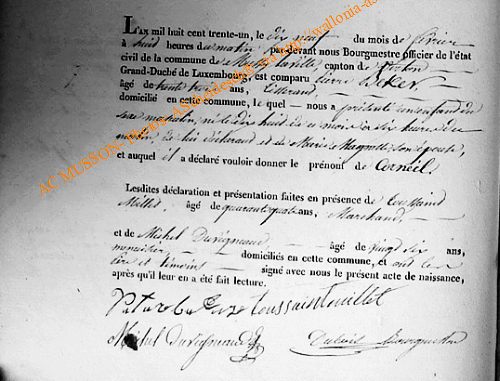 L'AN mil huit cent trente-un, le dix neuf du mois de février
à huit heures du matin par-devant nous Bourgmestre officier de l'état
civil de la commune de Mussy la ville, canton de Virton
Grand-Duché de Luxembourg, est comparu pierre
âgé de trente ans,
domicilié en cette commune, le quel — nous a présenté un enfant du
sexe masculin, né le dix huit de ce mois à dix heures du
matin, de lui déclarant et de Marie Magnette son épouse,
et auquel il a déclaré vouloir donner le prénom de Corneil.
Lesdites déclaration et présentation faites en présence de Toussaint
Millet, âgé de quarante quatre ans, Marchand,
et de Michel Duvigneaud, — âgé de vingt six ans,
— domiciliés en cette commune, et ont les
père et témoins — signé avec nous le présent acte de naissance,
après qu'il leur en a été fait lecture.
toussaint millet
Michel Duvigneaud Bourgmestre
AC MUSSON